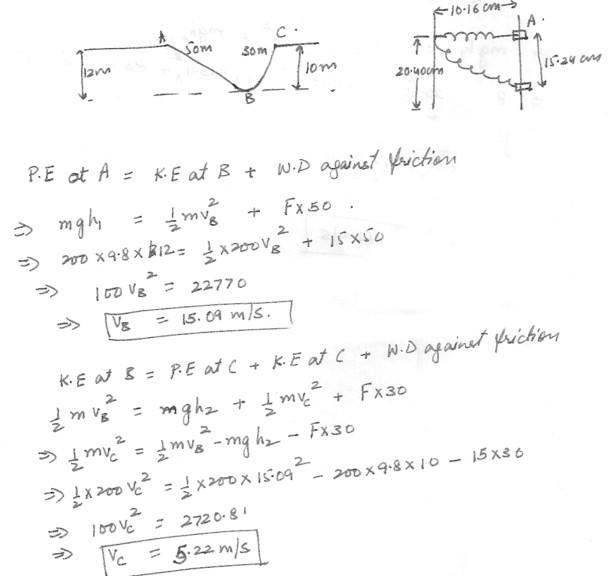 A
C.
50m
30m
12m
10m
B
10.16 cm
A.
20.40cm
15.24 cm
P.E at A = K.E at B + W.D against friction
⇒ mgh₁ = ½mv_B² + F×50.
⇒ 200 × 9.8 × 12 = ½×200V_B² + 15×50
⇒ 100 V_B² = 22770
⇒ V_B = 15.09 m/s.
K.E at B = P.E at C + K.E at C + W.D against friction
½ m V_B² = mgh₂ + ½ mv_C² + F×30
⇒ ½ mv_C² = ½mv_B² - mgh₂ - F×30
⇒ ½×200 V_C² = ½×200×15.09² - 200×9.8×10 - 15×30
⇒ 100V_C² = 2720.81
⇒ V_C = 5.22 m/s